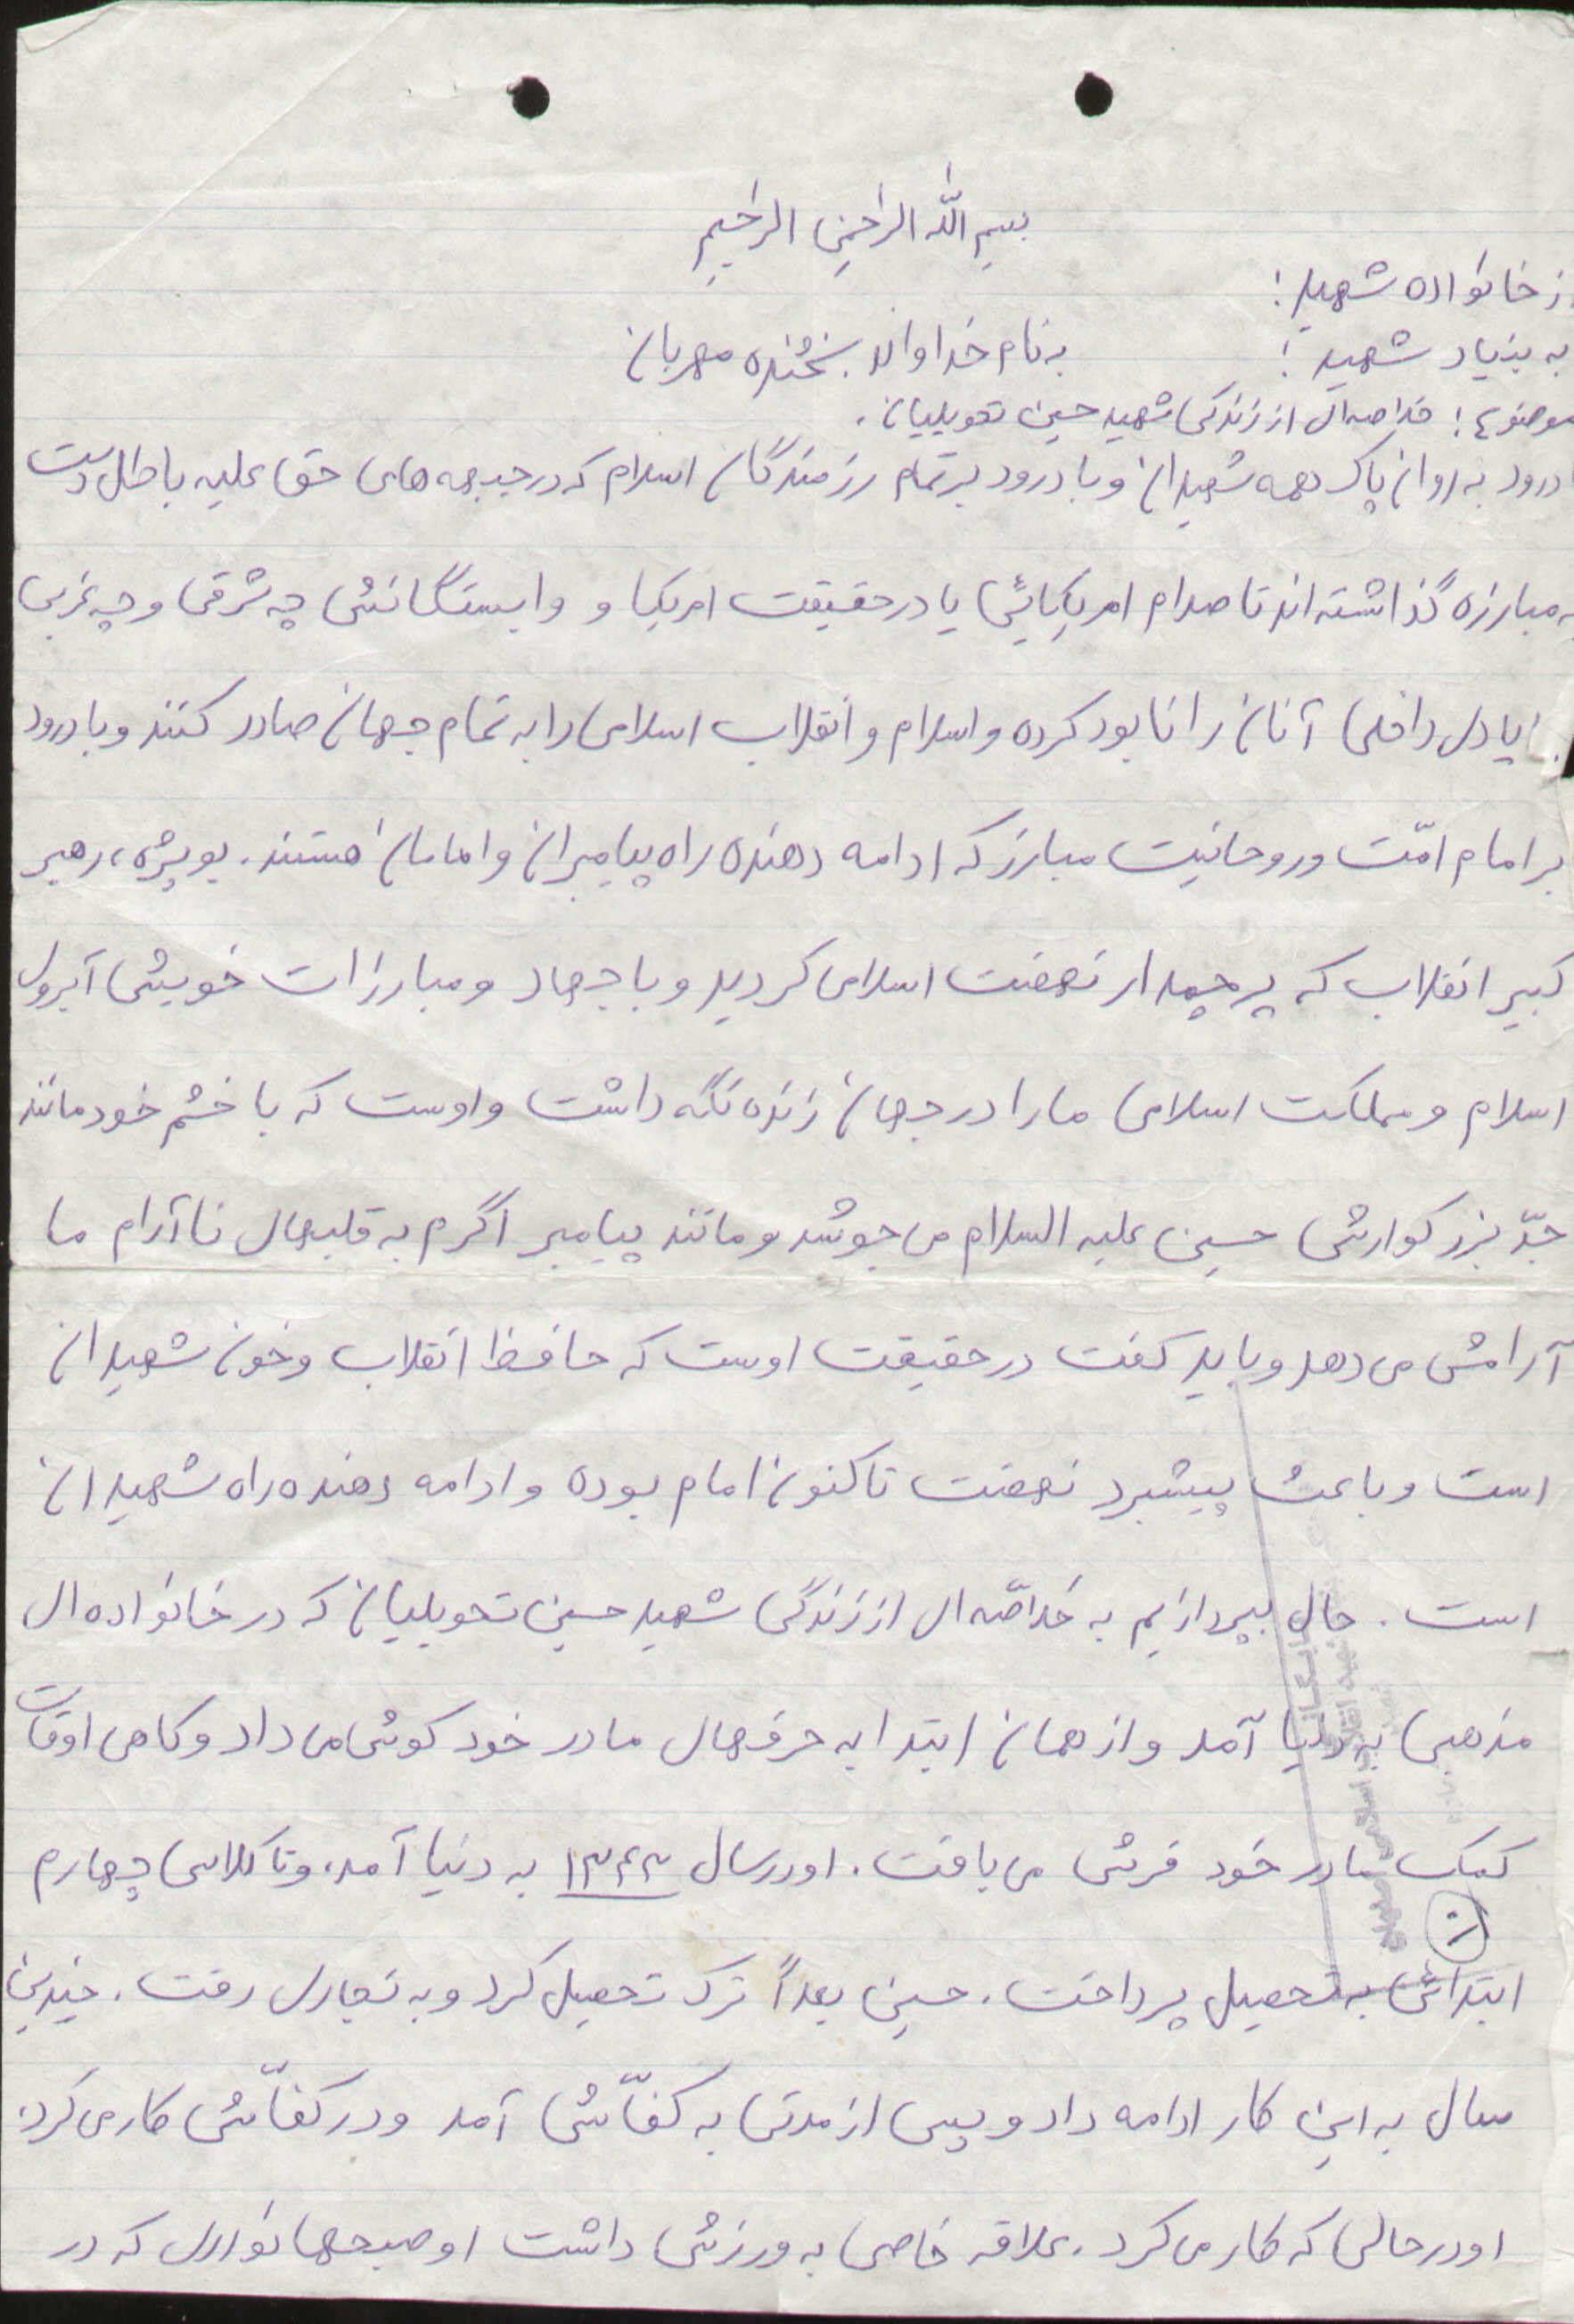 بسم الله الرحمن الرحیم
از خانواده شهید:
به بنیاد شهید:
به نام خداوند بخشنده مهربان
موضوع: خلاصه‌ای از زندگی شهید حسین تحویلیان.
با درود به روان پاک همه شهیدان و با درود بر تمام رزمندگان اسلام که در جبهه‌های حق علیه باطل دست
به مبارزه گذاشته‌اند تا صدام امریکائی یا در حقیقت امریکا و وابستگانش چه شرقی و چه غربی
ایادی داخلی آنان را نابود کرده و اسلام و انقلاب اسلامی را به تمام جهان صادر کنند و با درود
بر امام امّت و روحانیت مبارز که ادامه دهنده راه پیامبران و امامان هستند. بویژه، رهبر
کبیر انقلاب که پرچمدار نهضت اسلامی گردید و با جهاد و مبارزات خویش آبروی
اسلام و مملکت اسلامی ما را در جهان زنده نگه داشت و اوست که با خشم خود مانند
جدّ بزرگوارش حسین علیه السلام می‌جوشد و مانند پیامبر اکرم به قلبهای ناآرام ما
آرامش می‌دهد و باید گفت در حقیقت اوست که حافظ انقلاب و خون شهیدان
است و باعث پیشبرد نهضت تاکنون امام بوده و ادامه دهنده راه شهیدان
است. حال بپردازیم به خلاصّه‌ای از زندگی شهید حسین تحویلیان که در خانواده‌ای
مذهبی به دنیا آمد و از همان ابتدا به حرفهای مادر خود گوش می‌داد و گاهی اوقات
کمک مادر خود فرش می‌بافت. او در سال ۱۳۴۳ به دنیا آمد، و تا کلاس چهارم
ابتدائی به تحصیل پرداخت. حسین بعداً ترک تحصیل کرد و به نجاری رفت. چندین
سال به این کار ادامه داد و پس از مدتی به کفّاشی آمد و در کفّاشی کار می‌کرد.
او در حالی که کار می‌کرد. علاقه خاصی به ورزش داشت او صبحها نواری که در